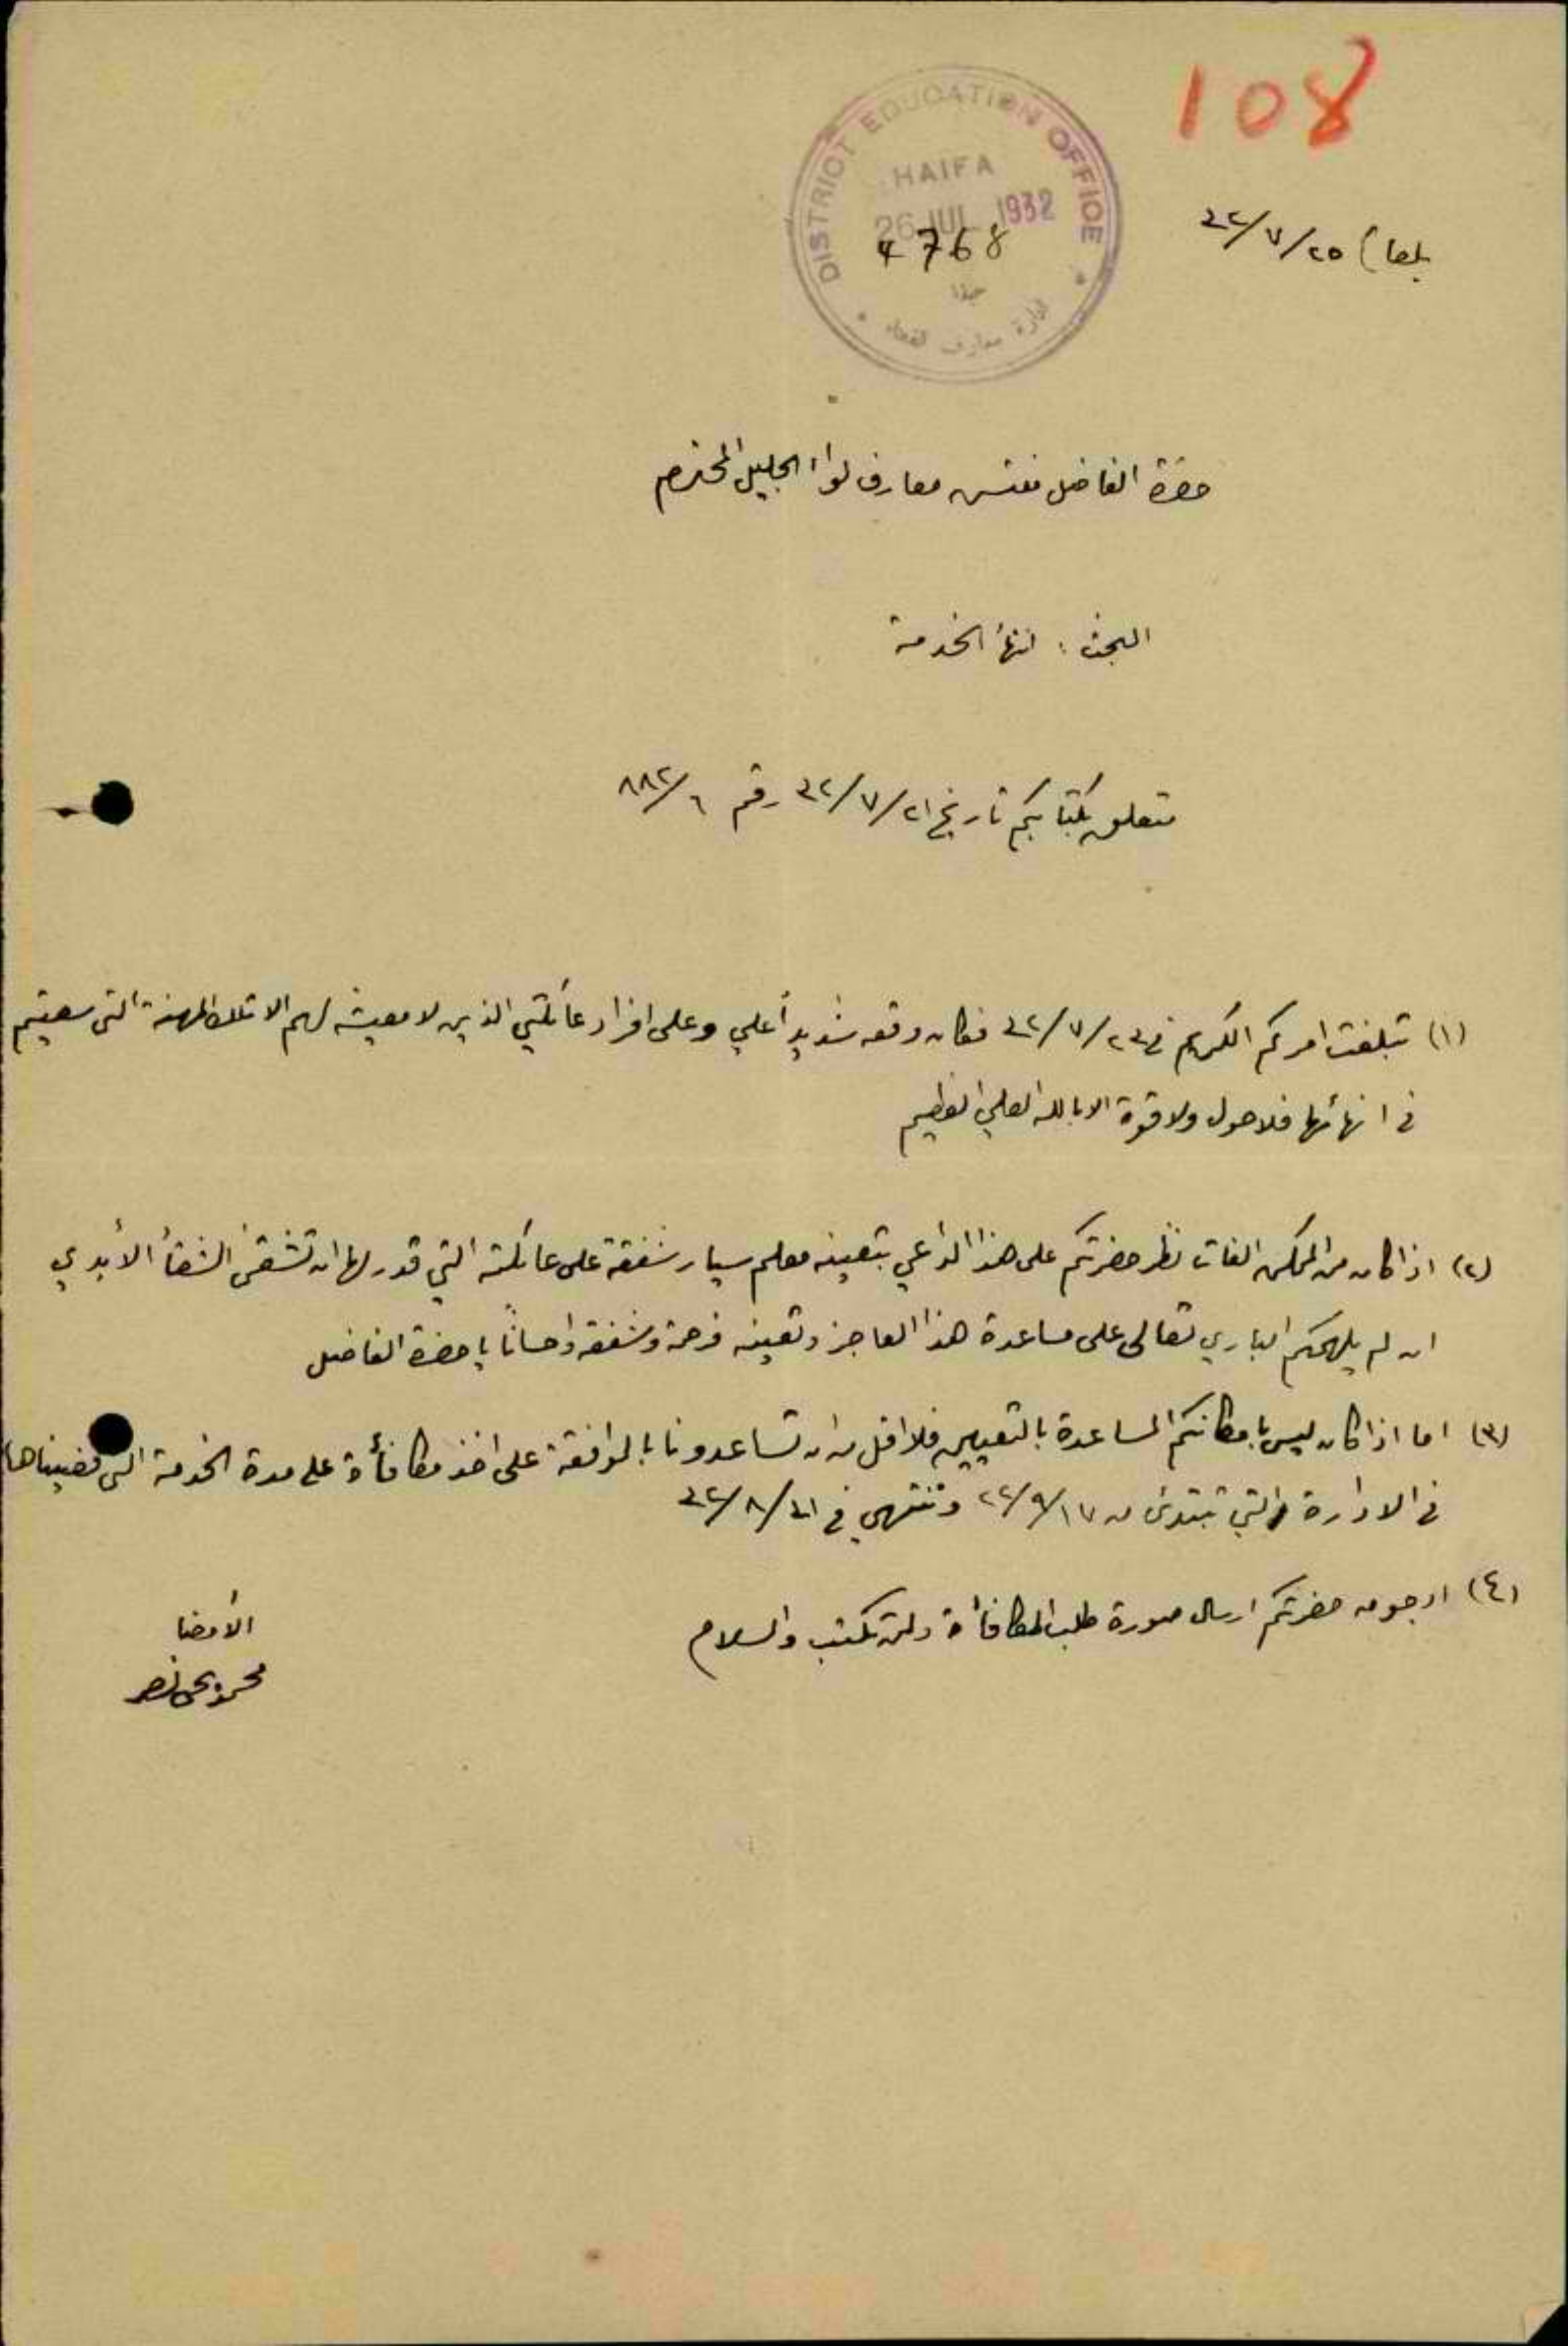 108
DISTRICT EDUCATION OFFICE
HAIFA
26 JUL 1932
4768
حيفا
ادارة معارف القضاء
بلعا) ٢٥/٧/٣٢
حضرة الفاضل مفتش معارف لواء الجليل المحترم
البحث : انتهأ الخدمة
متعلق بكتابكم تاريخ ٢١/٧/٣٢ رقم ٦/٨٨٢
(١) تبلغت امركم الكريم في ٢٣/٧/٣٢ فكان وقعه شديداً علي وعلى افراد عائلتي الذين لا معيشة لهم الا تلك المهنة التي سعيتم
في انهائها فلا حول ولا قوة الا بالله العلي العظيم
(٢) اذا كان من الممكن الفات نظر حضرتكم على هذا الداعي بتعيينه معلم سيار شفقة على عائلته التي قدر لها ان تشقى الشقأ الأبدي
ان لم يلهمكم الباري تعالى على مساعدة هذا العاجز وتعينه فرحمة وشفقة واحساناً يا حضرة الفاضل
(٣) اما اذا كان ليس بامكانكم المساعدة بالتعيين فلا اقل من ان تساعدونا بالموافقة على اخذ مكافأة على مدة الخدمة التي قضيناها
في الادارة والتي تبتدئ من ١٧/٩/٢٢ وتنتهي في ٣١/٨/٣٢
(٤) ارجو من حضرتكم ارسال صورة طلب المكافأة ولمن تكتب والسلام
الأمضا
محمود نصر